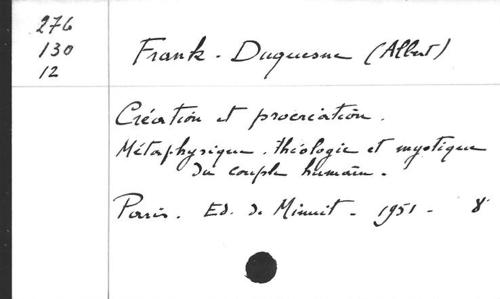 276
130
12
Frank-Duquesne (Albert)
Création et procréation.
Métaphysique. théologie et mystique
du couple humain.
Paris. Ed. de Minuit - 1951 - 8°